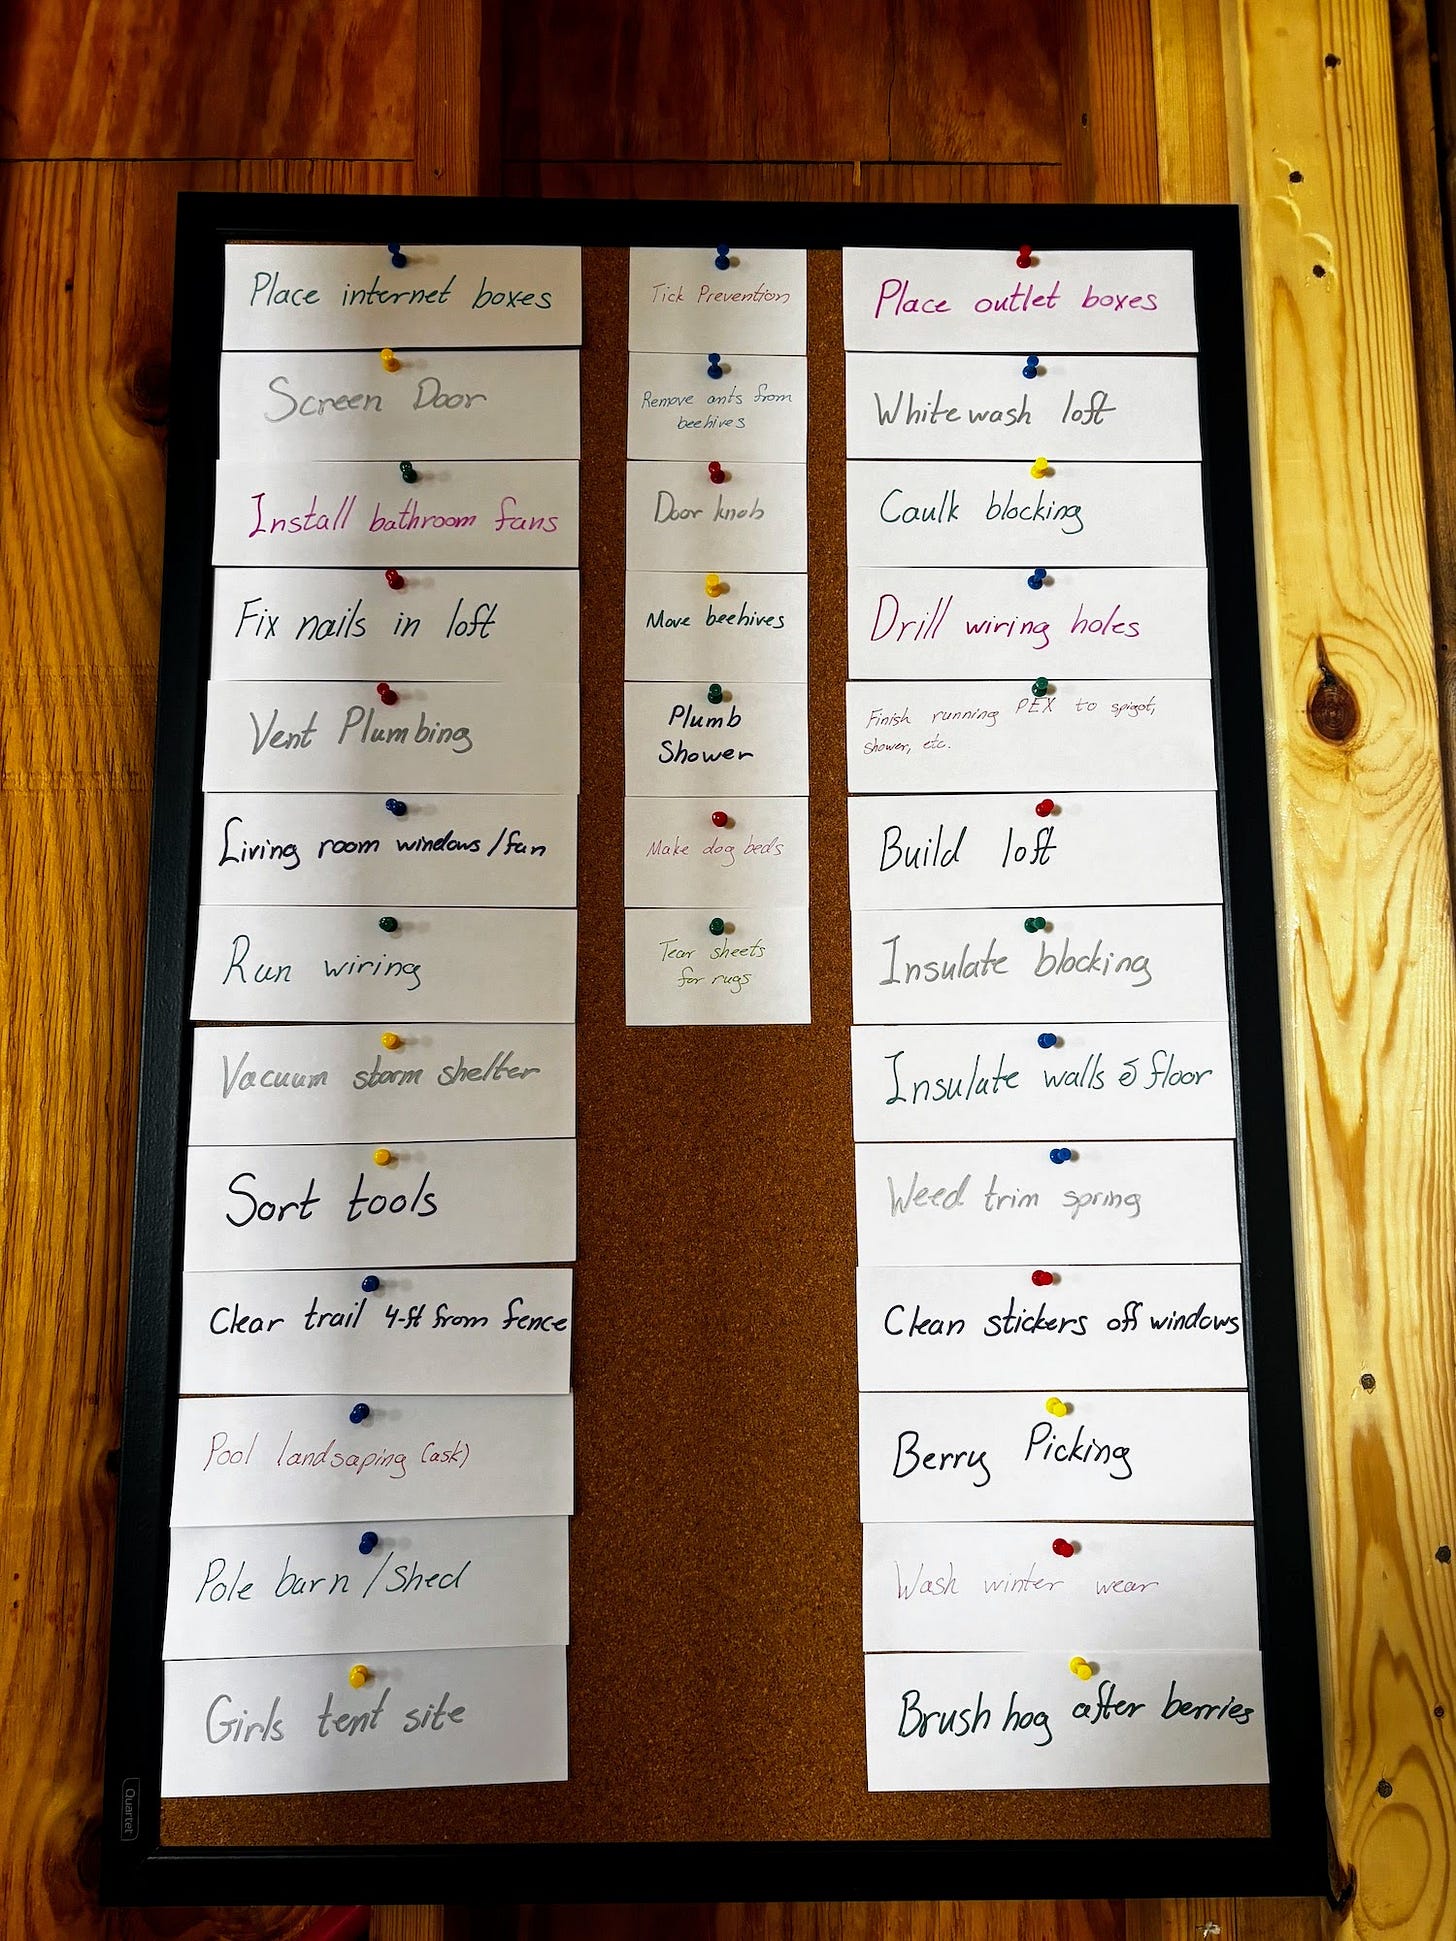 Place internet boxes
Screen Door
Install bathroom fans
Fix nails in loft
Vent Plumbing
Living room windows/fan
Run wiring
Vacuum storm shelter
Sort tools
Clear trail 4-ft from fence
Pool landsaping (ask)
Pole barn/shed
Girls tent site
Tick Prevention
Remove ants from
beehives
Door knob
Move beehives
Plumb
Shower
Make dog beds
Tear sheets
for rugs
Place outlet boxes
White wash loft
Caulk blocking
Drill wiring holes
Finish running PEX to spigot,
shower, etc.
Build loft
Insulate blocking
Insulate walls & floor
Weed trim spring
Clean stickers off windows
Berry Picking
Wash winter wear
Brush hog after berries
Quartet